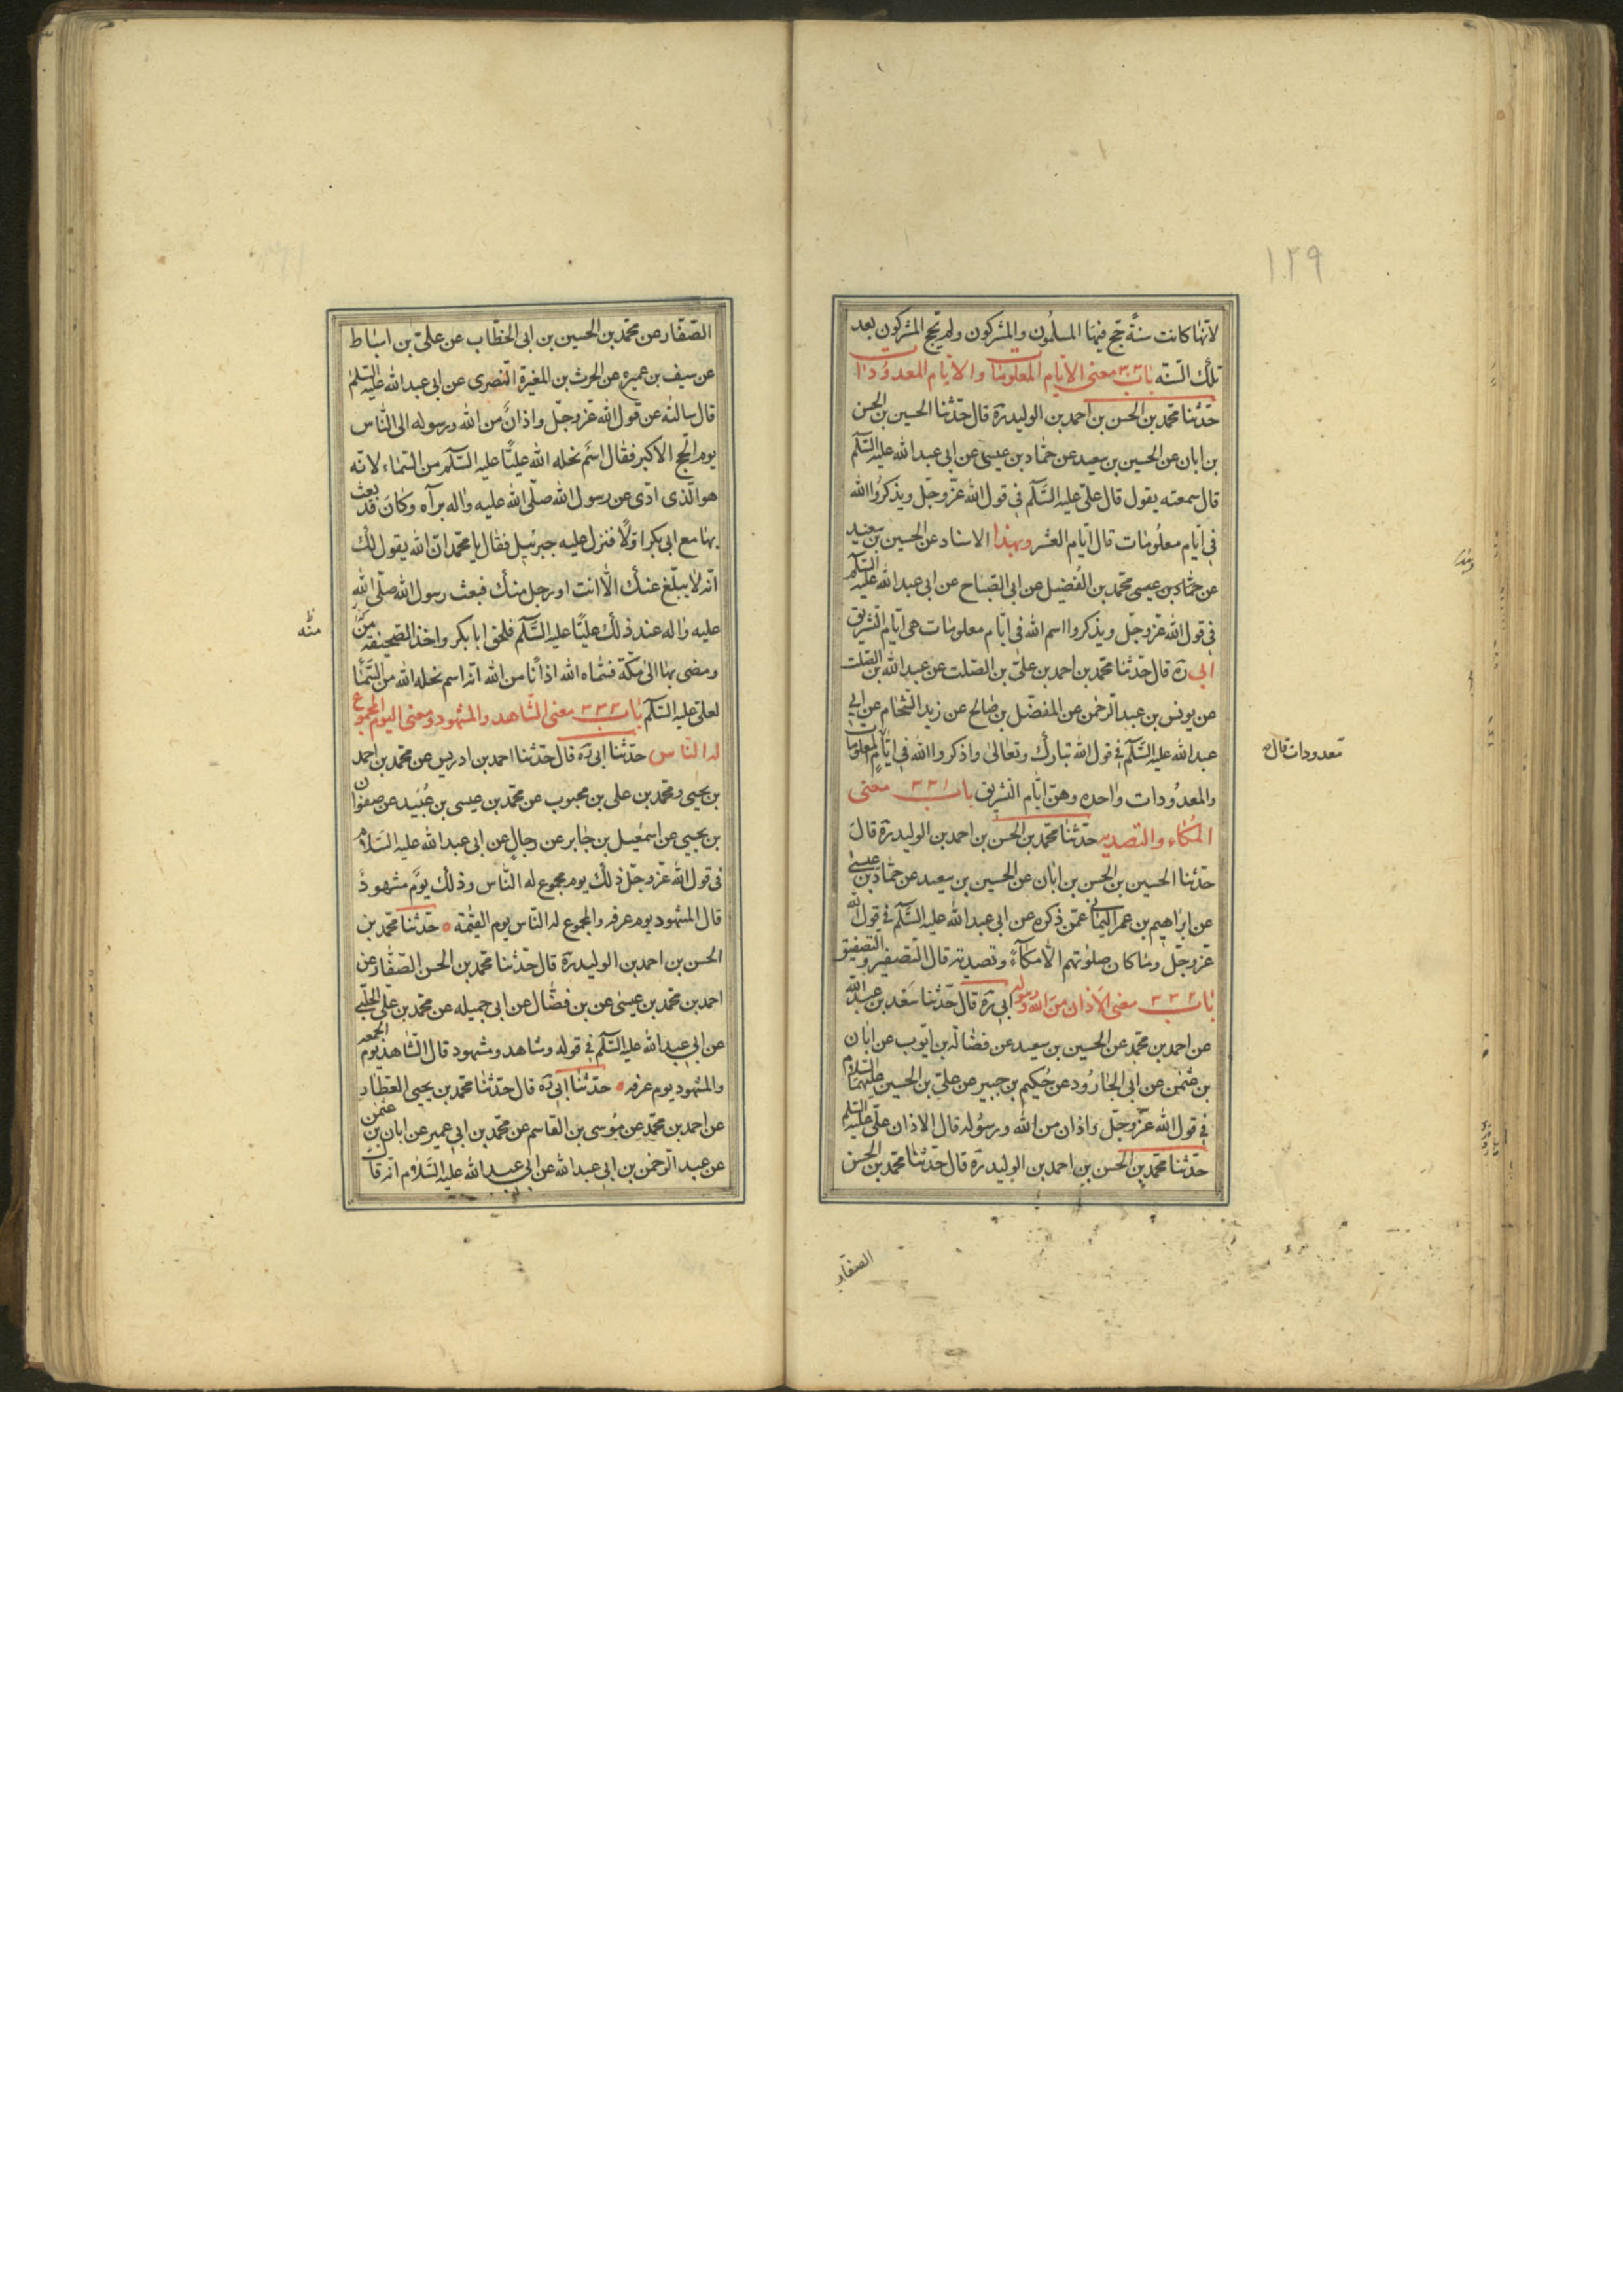 ١٢٩
لانها كانت سنة حج فيها المسلمون والمشركون ولم يحج المشركون بعد
تلك السنة باب ٣٣٠ معنى الايام المعلومات والايام المعدودات
حدثنا محمد بن الحسن بن احمد بن الوليد ره قال حدثنا الحسين بن الحسن
بن ابان عن الحسين بن سعيد عن حماد بن عيسى عن ابى عبد الله عليه السلم
قال سمعته يقول قال على عليه السلم فى قول الله عز وجل ويذكروا الله
فى ايام معلومات قال ايام العشر وبهذا الاسناد عن الحسين بن سعيد
عن حماد بن عيسى محمد بن الفضيل عن ابى الصباح عن ابى عبد الله عليه السلم
فى قول الله عز وجل ويذكروا اسم الله فى ايام معلومات هى ايام التشريق
ابى ره قال حدثنا محمد بن احمد بن على بن الصلت عن عبد الله بن الصلت
عن يونس بن عبد الرحمن عن المفضل بن صالح عن زيد الشحام عن ابى
عبد الله عليه السلم فى قول الله تبارك وتعالى واذكروا الله فى ايام المعلومات
معدودات قال
والمعدودات واحده وهن ايام التشريق باب ٣٣١ معنى
المكاء والتصديه حدثنا محمد بن الحسن بن احمد بن الوليد ره قال
حدثنا الحسين بن الحسن بن ابان عن الحسين بن سعيد عن حماد بن عيسى
عن ابراهيم بن عمر اليمانى عمن ذكره عن ابى عبد الله عليه السلم فى قول الله
عز وجل وما كان صلوتهم الا مكاء وتصدية قال التصفير والتصفيق
باب ٣٣٢ معنى الاذان من الله ورسوله ابى ره قال حدثنا سعد بن عبد الله
عن احمد بن محمد عن الحسين بن سعيد عن فضاله بن ايوب عن ابان
بن عثمن عن ابى الجارود عن حكيم بن جبير عن على بن الحسين عليهما السلام
فى قول الله عز وجل واذان من الله ورسوله قال الاذان على عليه السلم
حدثنا محمد بن الحسن بن احمد بن الوليد ره قال حدثنا محمد بن الحسن
الصفار
الصفار عن محمد بن الحسين بن ابى الخطاب عن على بن اسباط
عن سيف بن عميره عن الحرث بن المغيرة النصرى عن ابى عبد الله عليه السلم
قال سالته عن قول الله عز وجل واذان من الله ورسوله الى الناس
يوم الحج الاكبر فقال اسم نحله الله عليا عليه السلم من السماء لانه
هو الذى ادى عن رسول الله صلى الله عليه واله برآه وكان قد بعث
بها مع ابى بكر اولا فنزل عليه جبرئيل فقال يا محمد ان الله يقول لك
انه لا يبلغ عنك الا انت او رجل منك فبعث رسول الله صلى الله
عليه واله عند ذلك عليا عليه السلم فلحق ابا بكر واخذ الصحيفه من
منه
ومضى بها الى مكة فسماه الله اذانا من الله انه اسم نحله الله من السماء
لعلى عليه السلم باب ٣٣٣ معنى الشاهد والمشهود ومعنى اليوم المجموع
له الناس حدثنا ابى ره قال حدثنا احمد بن ادريس عن محمد بن احمد
بن يحيى ومحمد بن على بن محبوب عن محمد بن عيسى بن عبيد عن صفوان
بن يحيى عن اسمعيل بن جابر عن رجال عن ابى عبد الله عليه السلام
فى قول الله عز وجل ذلك يوم مجموع له الناس وذلك يوم مشهود
قال المشهود يوم عرفه والمجموع له الناس يوم القيمة حدثنا محمد بن
الحسن بن احمد بن الوليد ره قال حدثنا محمد بن الحسن الصفار عن
احمد بن محمد بن عيسى عن بن فضال عن ابى جميله عن محمد بن على الحلبى
عن ابى عبد الله عليه السلم فى قوله وشاهد ومشهود قال الشاهد يوم الجمعه
والمشهود يوم عرفه حدثنا ابى ره قال حدثنا محمد بن يحيى العطار
عن احمد بن محمد عن موسى بن القاسم عن محمد بن ابى عمير عن ابان بن عثمن
عن عبد الرحمن بن ابى عبد الله عن ابى عبد الله عليه السلام انه قال